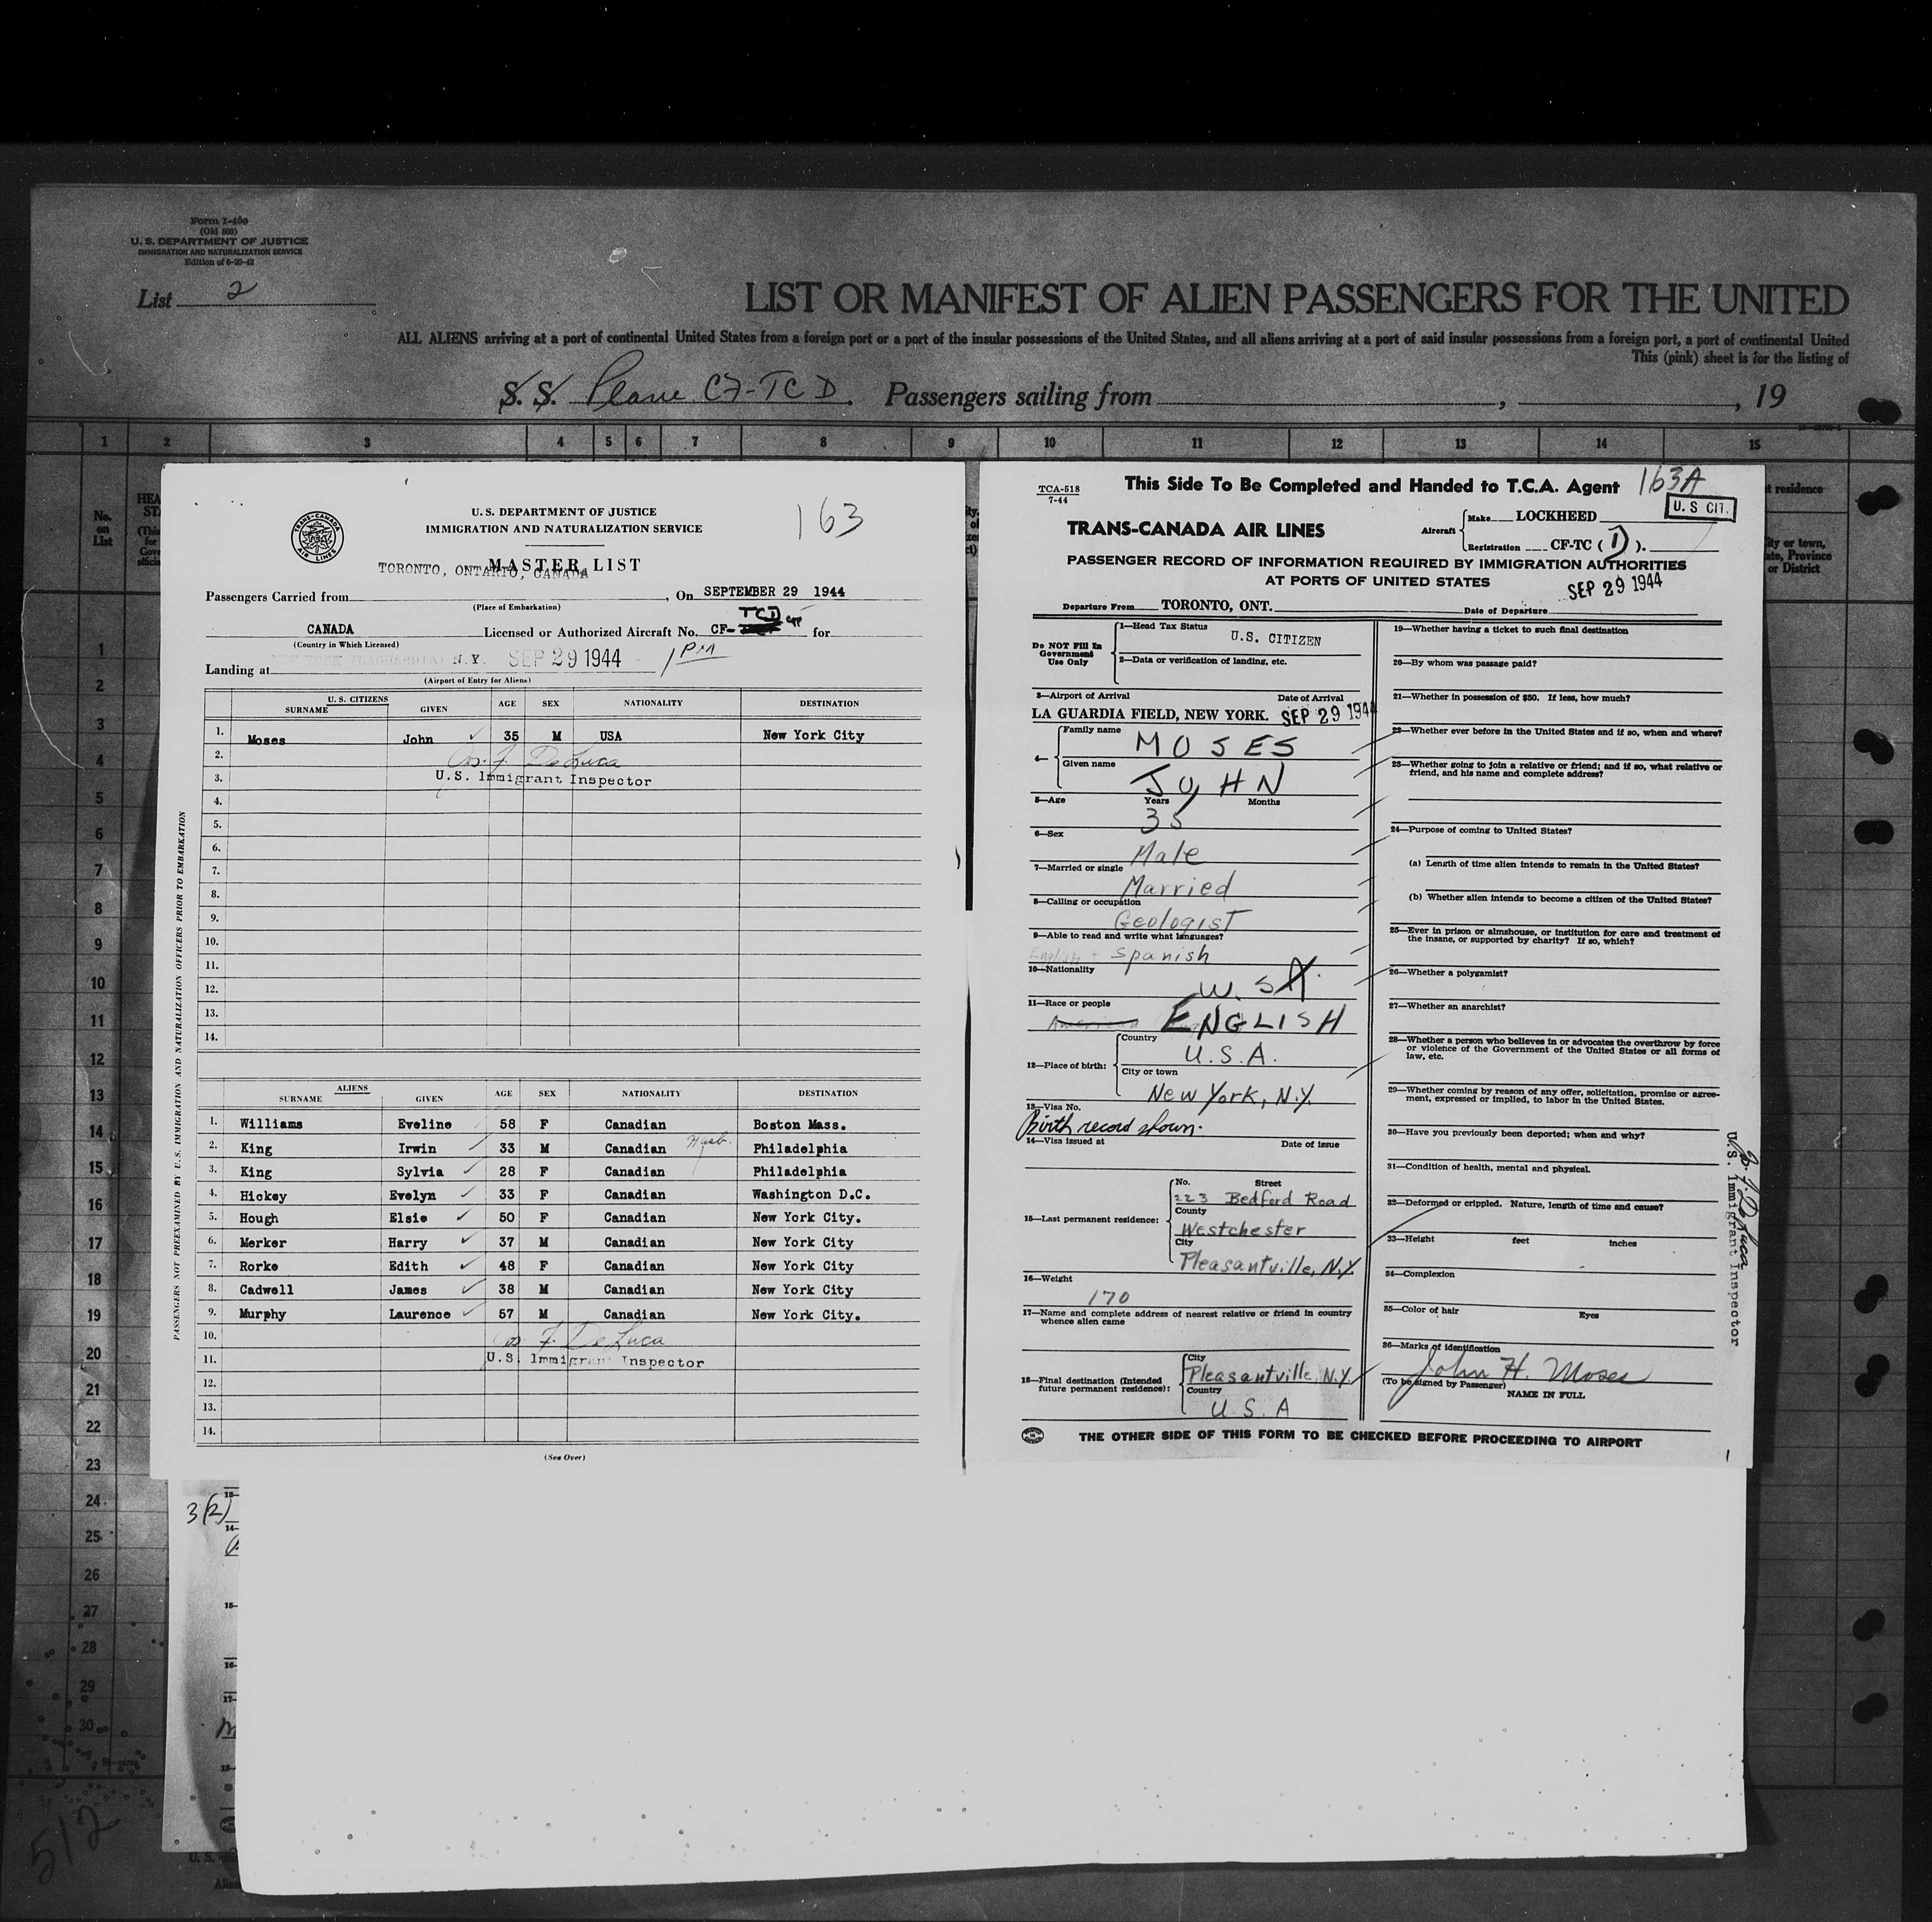 Form I-400
(Old 500)
U. S. DEPARTMENT OF JUSTICE
IMMIGRATION AND NATURALIZATION SERVICE
Edition of 6-20-42
List 2
LIST OR MANIFEST OF ALIEN PASSENGERS FOR THE UNITED
ALL ALIENS arriving at a port of continental United States from a foreign port or a port of the insular possessions of the United States, and all aliens arriving at a port of said insular possessions from a foreign port, a port of continental United
This (pink) sheet is for the listing of
S. S. Plane CF-TCD. Passengers sailing from , , 19
1 2 3 4 5 6 7 8 9 10 11 12 13 14 15
No.
on
List
1
2
3
4
5
6
7
8
9
10
11
12
13
14
15
16
17
18
19
20
21
22
23
24
25
26
27
28
29
30
512
TRANS-CANADA AIR LINES
U. S. DEPARTMENT OF JUSTICE
IMMIGRATION AND NATURALIZATION SERVICE
163
MASTER LIST
TORONTO, ONTARIO, CANADA
Passengers Carried from , On SEPTEMBER 29 1944
(Place of Embarkation)
TCD
CANADA Licensed or Authorized Aircraft No. CF- for
(Country in Which Licensed)
NEW YORK (LAGUARDIA) N.Y. SEP 29 1944 1 PM
Landing at
(Airport of Entry for Aliens)
PASSENGERS NOT PREEXAMINED BY U.S. IMMIGRATION AND NATURALIZATION OFFICERS PRIOR TO EMBARKATION
U. S. CITIZENS
SURNAME GIVEN AGE SEX NATIONALITY DESTINATION
1. Moses John 35 M USA New York City
2. F. DeLuca
3. U.S. Immigrant Inspector
4.
5.
6.
7.
8.
9.
10.
11.
12.
13.
14.
ALIENS
SURNAME GIVEN AGE SEX NATIONALITY DESTINATION
1. Williams Eveline 58 F Canadian Boston Mass.
2. King Irwin 33 M Canadian Husb. Philadelphia
3. King Sylvia 28 F Canadian Philadelphia
4. Hickey Evelyn 33 F Canadian Washington D.C.
5. Hough Elsie 50 F Canadian New York City.
6. Merker Harry 37 M Canadian New York City
7. Rorke Edith 48 F Canadian New York City
8. Cadwell James 38 M Canadian New York City
9. Murphy Laurence 57 M Canadian New York City.
10. F. DeLuca
11. U.S. Immigrant Inspector
12.
13.
14.
(See Over)
TCA-518
7-44
This Side To Be Completed and Handed to T.C.A. Agent 163A
U. S CIT.
TRANS-CANADA AIR LINES
Aircraft Make LOCKHEED
Registration CF-TC ( D ).
PASSENGER RECORD OF INFORMATION REQUIRED BY IMMIGRATION AUTHORITIES
AT PORTS OF UNITED STATES
SEP 29 1944
Departure From TORONTO, ONT. Date of Departure
Do NOT Fill In
Government
Use Only
1—Head Tax Status
U.S. CITIZEN
2—Data or verification of landing, etc.
3—Airport of Arrival Date of Arrival
LA GUARDIA FIELD, NEW YORK. SEP 29 1944
4— Family name
MOSES
Given name
JOHN
5—Age Years Months
35
6—Sex
Male
7—Married or single
Married
8—Calling or occupation
Geologist
9—Able to read and write what languages?
English + Spanish
10—Nationality
U.S.A.
11—Race or people
American ENGLISH
12—Place of birth:
Country
U.S.A.
City or town
New York, N.Y.
13—Visa No.
Birth record shown.
14—Visa issued at Date of issue
15—Last permanent residence:
No. Street
223 Bedford Road
County
Westchester
City
Pleasantville, N.Y.
16—Weight
170
17—Name and complete address of nearest relative or friend in country
whence alien came
18—Final destination (Intended
future permanent residence):
City
Pleasantville, N.Y.
Country
U.S.A
19—Whether having a ticket to such final destination
20—By whom was passage paid?
21—Whether in possession of $50. If less, how much?
22—Whether ever before in the United States and if so, when and where?
23—Whether going to join a relative or friend; and if so, what relative or
friend, and his name and complete address?
24—Purpose of coming to United States?
(a) Length of time alien intends to remain in the United States?
(b) Whether alien intends to become a citizen of the United States?
25—Ever in prison or almshouse, or institution for care and treatment of
the insane, or supported by charity? If so, which?
26—Whether a polygamist?
27—Whether an anarchist?
28—Whether a person who believes in or advocates the overthrow by force
or violence of the Government of the United States or all forms of
law, etc.
29—Whether coming by reason of any offer, solicitation, promise or agree-
ment, expressed or implied, to labor in the United States.
30—Have you previously been deported; when and why?
31—Condition of health, mental and physical.
32—Deformed or crippled. Nature, length of time and cause?
33—Height feet inches
34—Complexion
35—Color of hair Eyes
36—Marks of identification
John H. Moses
(To be signed by Passenger)
NAME IN FULL
F. DeLuca
U.S. Immigrant Inspector
THE OTHER SIDE OF THIS FORM TO BE CHECKED BEFORE PROCEEDING TO AIRPORT
t residence
ity or town,
ate, Province
or District
3(2)